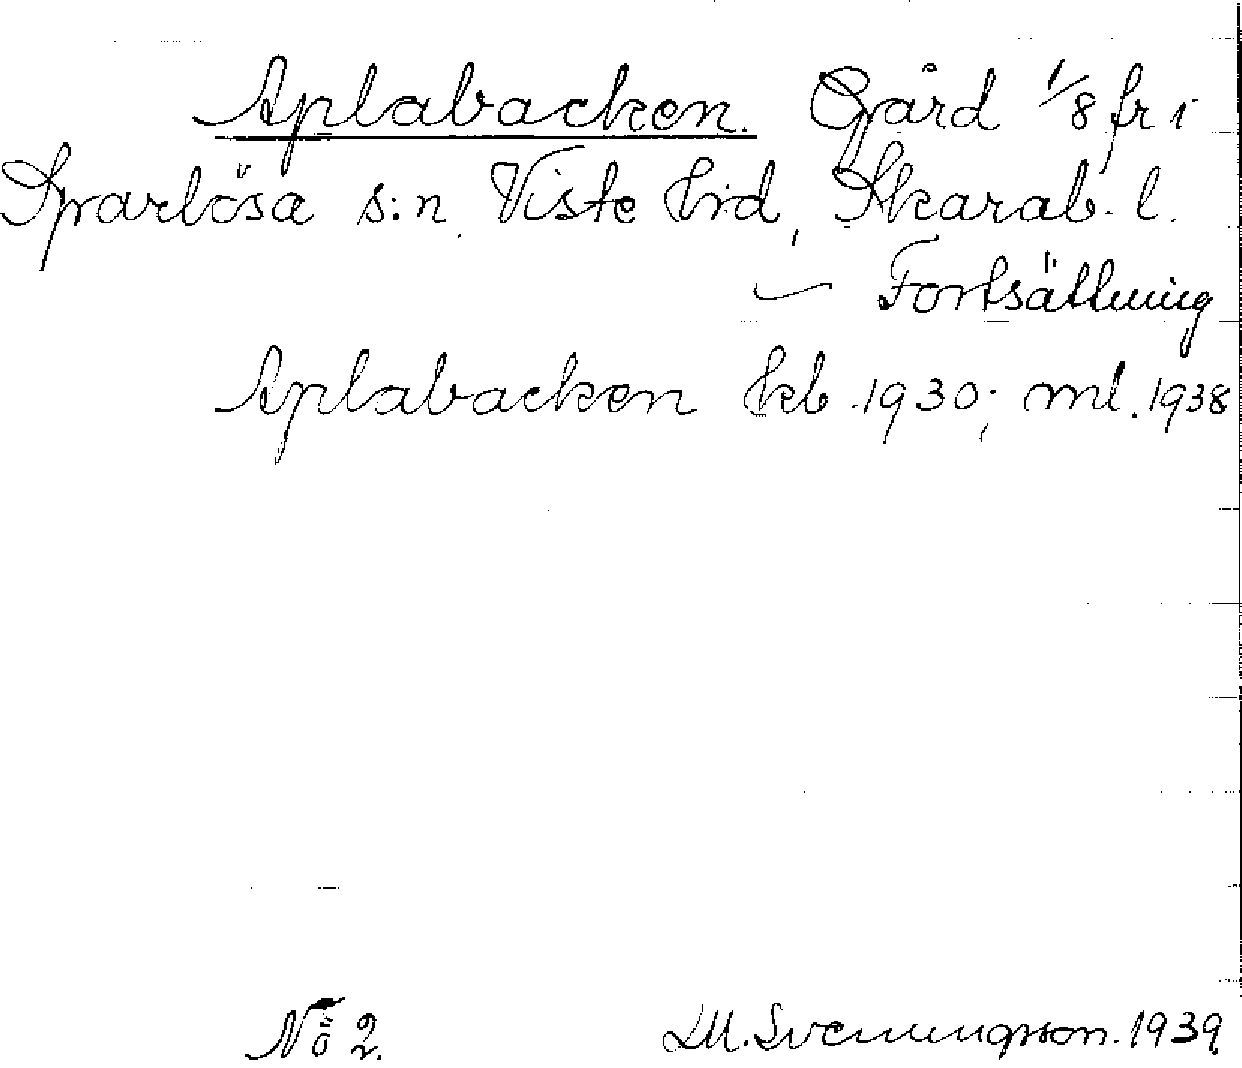 Aplabacken. Gård 1/8 fr i
Sparlösa s:n Viste hrd, Skarab. l.
— Fortsättning
Aplabacken kb. 1930; ml. 1938
No 2. M. Svenningsson. 1939